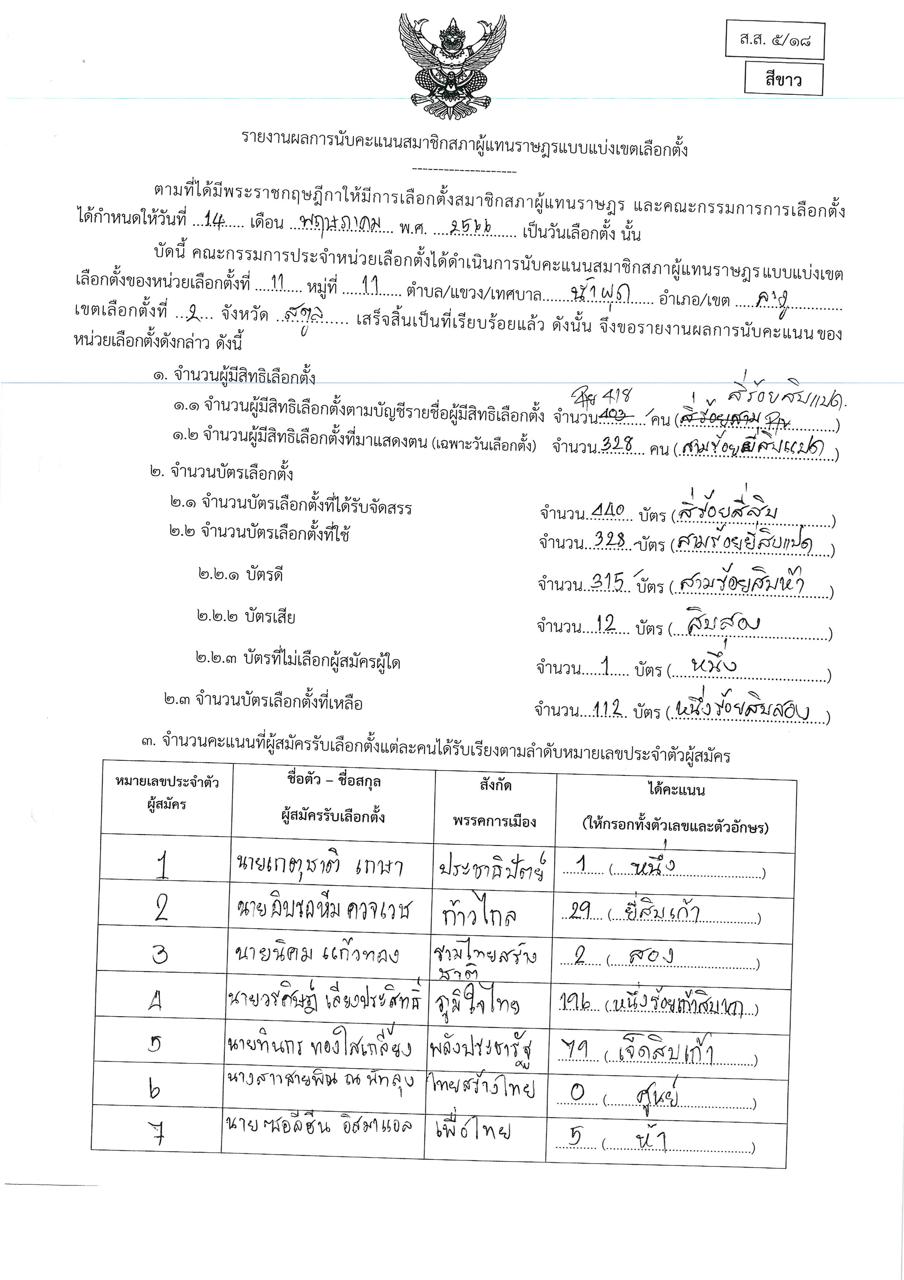 ส.ส. ๕/๑๘
สีขาว
รายงานผลการนับคะแนนสมาชิกสภาผู้แทนราษฎรแบบแบ่งเขตเลือกตั้ง
ตามที่ได้มีพระราชกฤษฎีกาให้มีการเลือกตั้งสมาชิกสภาผู้แทนราษฎร และคณะกรรมการการเลือกตั้ง
ได้กำหนดให้วันที่ 14 เดือน พฤษภาคม พ.ศ. 2566 เป็นวันเลือกตั้ง นั้น
บัดนี้ คณะกรรมการประจำหน่วยเลือกตั้งได้ดำเนินการนับคะแนนสมาชิกสภาผู้แทนราษฎรแบบแบ่งเขต
เลือกตั้งของหน่วยเลือกตั้งที่ 11 หมู่ที่ 11 ตำบล/แขวง/เทศบาล น้ำผุด อำเภอ/เขต ละงู
เขตเลือกตั้งที่ 2 จังหวัด สตูล เสร็จสิ้นเป็นที่เรียบร้อยแล้ว ดังนั้น จึงขอรายงานผลการนับคะแนนของ
หน่วยเลือกตั้งดังกล่าว ดังนี้
๑. จำนวนผู้มีสิทธิเลือกตั้ง
418 สี่ร้อยสิบแปด.
๑.๑ จำนวนผู้มีสิทธิเลือกตั้งตามบัญชีรายชื่อผู้มีสิทธิเลือกตั้ง จำนวน 403 คน (สี่ร้อยสาม)
๑.๒ จำนวนผู้มีสิทธิเลือกตั้งที่มาแสดงตน (เฉพาะวันเลือกตั้ง) จำนวน 328 คน (สามร้อยยี่สิบแปด)
๒. จำนวนบัตรเลือกตั้ง
๒.๑ จำนวนบัตรเลือกตั้งที่ได้รับจัดสรร จำนวน 440 บัตร (สี่ร้อยสี่สิบ)
๒.๒ จำนวนบัตรเลือกตั้งที่ใช้ จำนวน 328 บัตร (สามร้อยยี่สิบแปด)
๒.๒.๑ บัตรดี จำนวน 315 บัตร (สามร้อยสิบห้า)
๒.๒.๒ บัตรเสีย จำนวน 12 บัตร (สิบสอง)
๒.๒.๓ บัตรที่ไม่เลือกผู้สมัครผู้ใด จำนวน 1 บัตร (หนึ่ง)
๒.๓ จำนวนบัตรเลือกตั้งที่เหลือ จำนวน 112 บัตร (หนึ่งร้อยสิบสอง)
๓. จำนวนคะแนนที่ผู้สมัครรับเลือกตั้งแต่ละคนได้รับเรียงตามลำดับหมายเลขประจำตัวผู้สมัคร
หมายเลขประจำตัว ชื่อตัว – ชื่อสกุล สังกัด ได้คะแนน
ผู้สมัคร ผู้สมัครรับเลือกตั้ง พรรคการเมือง (ให้กรอกทั้งตัวเลขและตัวอักษร)
1 นายเกตุชาติ เกษา ประชาธิปัตย์ 1 (หนึ่ง)
2 นายอิบรอหีม ควจเวช ก้าวไกล 29 (ยี่สิบเก้า)
3 นายนิคม แก้วทอง รวมไทยสร้าง 2 (สอง)
ชาติ
4 นายวรศิษฎ์ เลียงประสิทธิ์ ภูมิใจไทย 196 (หนึ่งร้อยเก้าสิบหก)
5 นายทินกร ทองใสเกลี้ยง พลังประชารัฐ 79 (เจ็ดสิบเก้า)
6 นางสาวสายพิณ ณ พัทลุง ไทยสร้างไทย 0 (ศูนย์)
7 นาย อิสมาแอล เพื่อไทย 5 (ห้า)